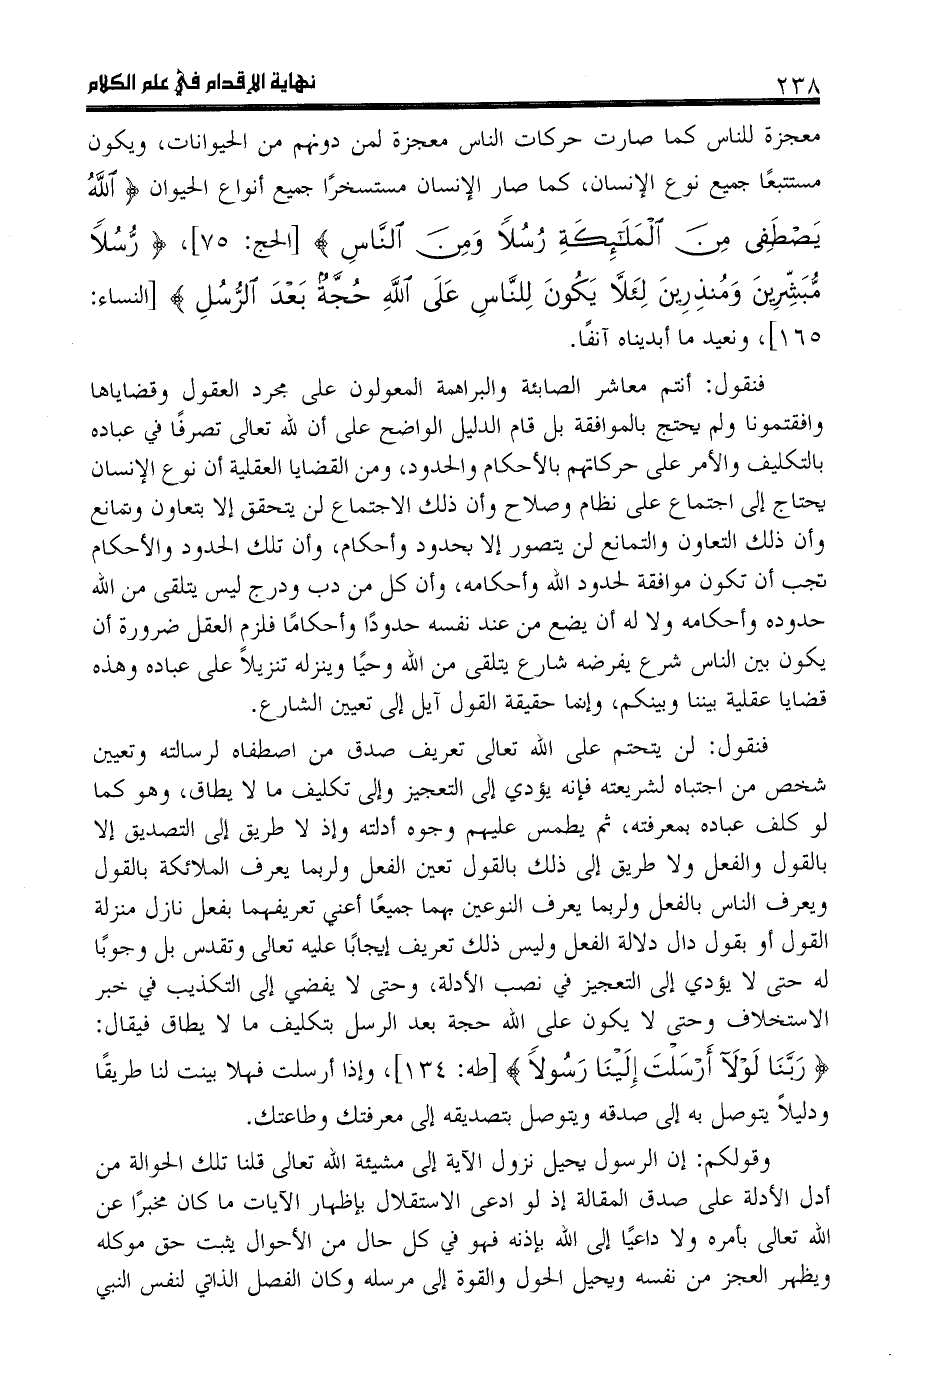 ٢٣٨
نهاية الإقدام في علم الكلام
معجزة للناس كما صارت حركات الناس معجزة لمن دونهم من الحيوانات، ويكون
مستتبعًا جميع نوع الإنسان، كما صار الإنسان مستسخرًا جميع أنواع الحيوان ﴿ ٱللَّهُ
يَصْطَفِى مِنَ ٱلْمَلَٰٓئِكَةِ رُسُلًا وَمِنَ ٱلنَّاسِ ﴾ [الحج: ٧٥]، ﴿ رُّسُلًا
مُّبَشِّرِينَ وَمُنذِرِينَ لِئَلَّا يَكُونَ لِلنَّاسِ عَلَى ٱللَّهِ حُجَّةٌۢ بَعْدَ ٱلرُّسُلِ ﴾ [النساء:
١٦٥]، ونعيد ما أبديناه آنفًا.
فنقول: أنتم معاشر الصابئة والبراهمة المعولون على مجرد العقول وقضاياها
وافقتمونا ولم يحتج بالموافقة بل قام الدليل الواضح على أن لله تعالى تصرفًا في عباده
بالتكليف والأمر على حركاتهم بالأحكام والحدود، ومن القضايا العقلية أن نوع الإنسان
يحتاج إلى اجتماع على نظام وصلاح وأن ذلك الاجتماع لن يتحقق إلا بتعاون وتمانع
وأن ذلك التعاون والتمانع لن يتصور إلا بحدود وأحكام، وأن تلك الحدود والأحكام
تجب أن تكون موافقة لحدود الله وأحكامه، وأن كل من دب ودرج ليس يتلقى من الله
حدوده وأحكامه ولا له أن يضع من عند نفسه حدودًا وأحكامًا فلزم العقل ضرورة أن
يكون بين الناس شرع يفرضه شارع يتلقى من الله وحيًا وينزله تنزيلاً على عباده وهذه
قضايا عقلية بيننا وبينكم، وإنما حقيقة القول آيل إلى تعيين الشارع.
فنقول: لن يتحتم على الله تعالى تعريف صدق من اصطفاه لرسالته وتعيين
شخص من اجتباه لشريعته فإنه يؤدي إلى التعجيز وإلى تكليف ما لا يطاق، وهو كما
لو كلف عباده بمعرفته، ثم يطمس عليهم وجوه أدلته وإذ لا طريق إلى التصديق إلا
بالقول والفعل ولا طريق إلى ذلك بالقول تعين الفعل ولربما يعرف الملائكة بالقول
ويعرف الناس بالفعل ولربما يعرف النوعين بهما جميعًا أعني تعريفهما بفعل نازل منزلة
القول أو بقول دال دلالة الفعل وليس ذلك تعريف إيجابًا عليه تعالى وتقدس بل وجوبًا
له حتى لا يؤدي إلى التعجيز في نصب الأدلة، وحتى لا يفضي إلى التكذيب في خبر
الاستخلاف وحتى لا يكون على الله حجة بعد الرسل بتكليف ما لا يطاق فيقال:
﴿ رَبَّنَا لَوْلَآ أَرْسَلْتَ إِلَيْنَا رَسُولاً ﴾ [طه: ١٣٤]، وإذا أرسلت فهلا بينت لنا طريقًا
ودليلاً يتوصل به إلى صدقه ويتوصل بتصديقه إلى معرفتك وطاعتك.
وقولكم: إن الرسول يحيل نزول الآية إلى مشيئة الله تعالى قلنا تلك الحوالة من
أدل الأدلة على صدق المقالة إذ لو ادعى الاستقلال بإظهار الآيات ما كان مخبرًا عن
الله تعالى بأمره ولا داعيًا إلى الله بإذنه فهو في كل حال من الأحوال يثبت حق موكله
ويظهر العجز من نفسه ويحيل الحول والقوة إلى مرسله وكان الفصل الذاتي لنفس النبي